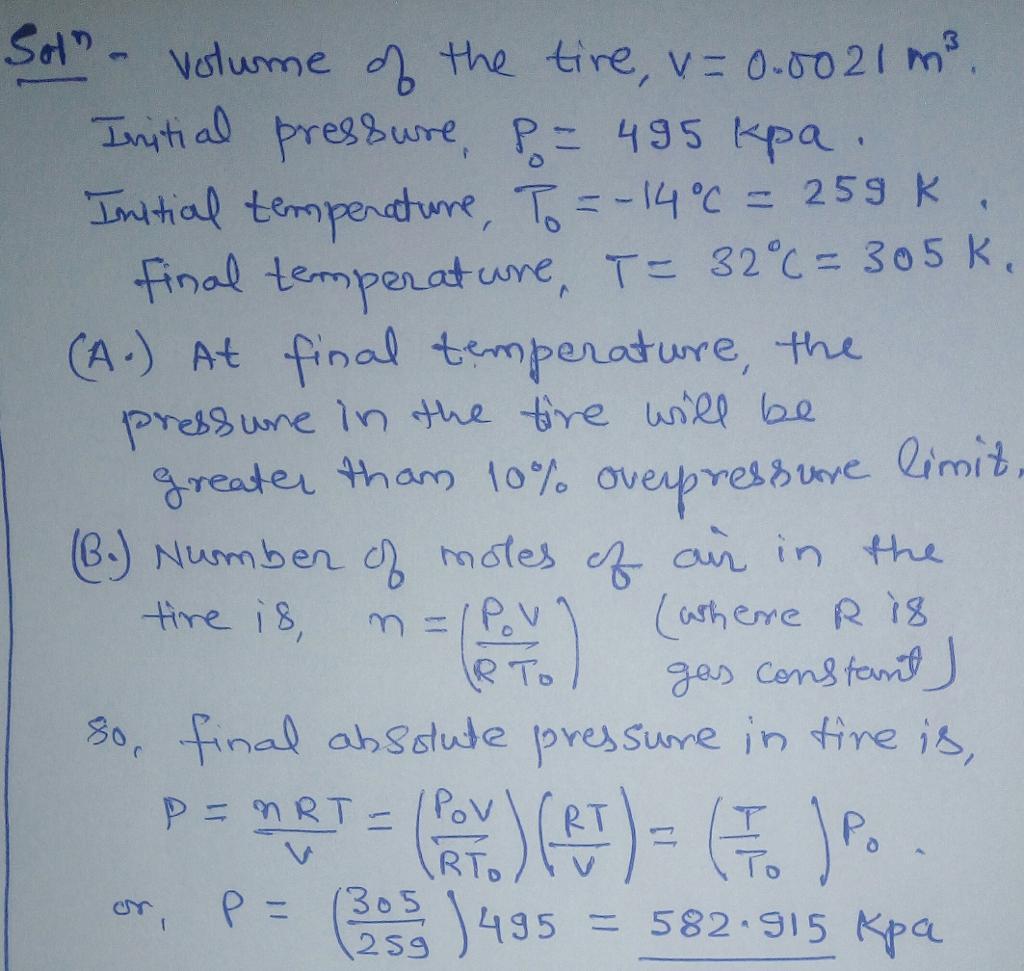 Solⁿ - Volume of the tire, V = 0.0021 m³.
Initial pressure, P₀ = 495 kpa.
Initial temperature, T₀ = -14°C = 259 K.
final temperature, T = 32°C = 305 K.
(A.) At final temperature, the
pressure in the tire will be
greater than 10% overpressure limit.
(B.) Number of moles of air in the
tire is, n = (P₀V / RT₀) (where R is
gas constant)
So, final absolute pressure in tire is,
P = nRT / V = (P₀V / RT₀) (RT / V) = (T / T₀) P₀.
or, P = (305 / 259) 495 = 582.915 Kpa